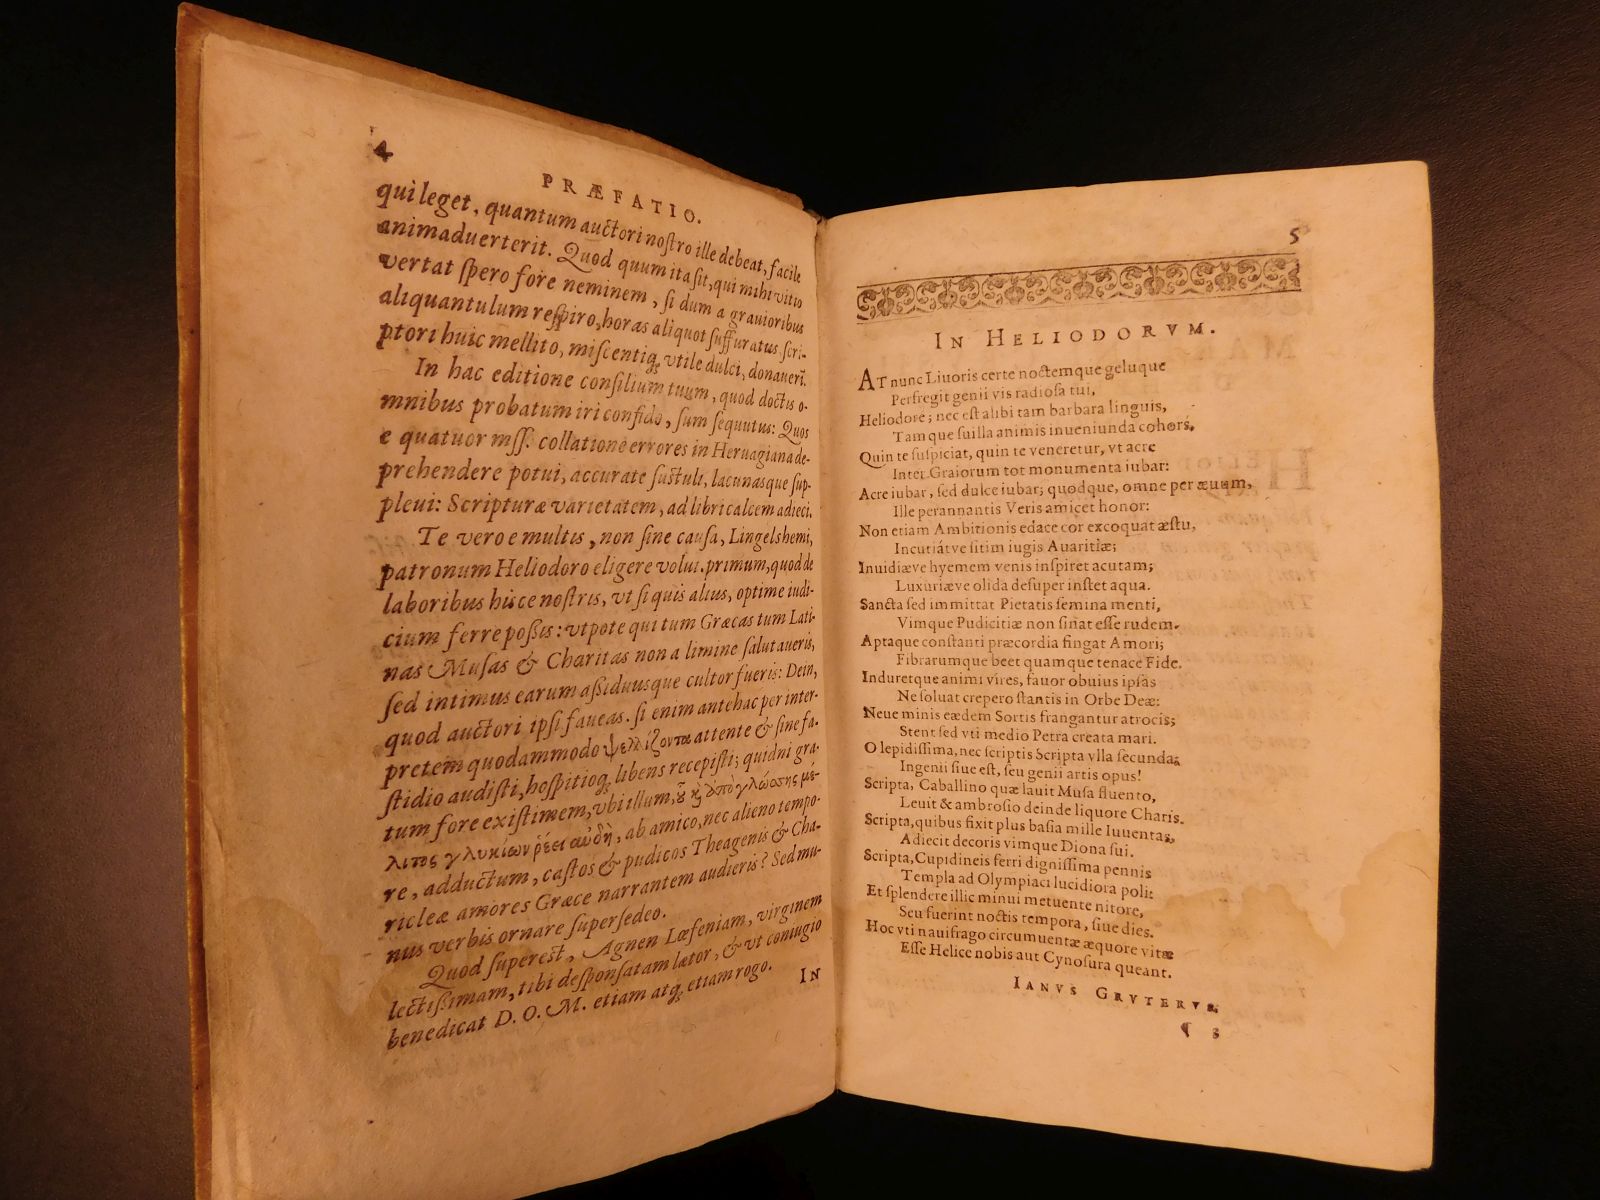 4
PRÆFATIO.
qui leget, quantum auctori nostro ille debeat, facile
animaduerterit. Quod quum ita sit, qui mihi vitio
vertat spero fore neminem, si dum a grauioribus
aliquantulum respiro, horas aliquot suffuratus scri-
ptori huic mellito, miscentiq; vtile dulci, donauerĩ.
In hac editione consilium tuum, quod doctis o-
mnibus probatum iri confido, sum sequutus: Quos
e quatuor mss. collatione errores in Heruagiana de-
prehendere potui, accurate sustuli, lacunasque sup-
pleui: Scripturæ varietatem, ad libri calcem adieci.
Te vero e multis, non sine causa, Lingelshemi,
patronum Heliodoro eligere volui. primum, quod de
laboribus hisce nostris, vt si quis alius, optime iudi-
cium ferre possis: vtpote qui tum Græcas tum Lati-
nas Musas & Charitas non a limine salutaueris,
sed intimus earum assiduusque cultor fueris: Dein,
quod auctori ipsi faueas. si enim antehac per inter-
pretem quodammodo ψελλίζοντα attente & sine fa-
stidio audisti, hospitioq; libens recepisti; quidni gra-
tum fore existimem, vbi illum, οὗ κỳ ἀπὸ γλώσσης μέ-
λιτος γλυκίων ῥέει αὐδὴ, ab amico, nec alieno tempo-
re, adductum, castos & pudicos Theagenis & Cha-
ricleæ amores Græce narrantem audieris? Sed mu-
nus verbis ornare supersedeo.
Quod superest, Agnen Lœfeniam, virginem
lectissimam, tibi desponsatam lætor, & vt coniugio
benedicat D. O. M. etiam atq; etiam rogo.
IN
5
IN HELIODORVM.
AT nunc Liuoris certe noctemque geluque
Perfregit genii vis radiosa tui,
Heliodore; nec est alibi tam barbara linguis,
Tamque suilla animis inueniunda cohors,
Quin te suspiciat, quin te veneretur, vt acre
Inter Graiorum tot monumenta iubar:
Acre iubar, sed dulce iubar; quodque, omne per æuum,
Ille perannantis Veris amicet honor:
Non etiam Ambitionis edace cor excoquat æstu,
Incutiátve sitim iugis Auaritiæ;
Inuidiæve hyemem venis inspiret acutam;
Luxuriæve olida desuper instet aqua.
Sancta sed immittat Pietatis semina menti,
Vimque Pudicitiæ non sinat esse rudem.
Aptaque constanti præcordia fingat Amori;
Fibrarumque beet quamque tenace Fide.
Induretque animi vires, fauor obuius ipsas
Ne soluat crepero stantis in Orbe Deæ:
Neue minis eædem Sortis frangantur atrocis;
Stent sed vti medio Petra creata mari.
O lepidissima, nec scriptis Scripta vlla secunda;
Ingenii siue est, seu genii artis opus!
Scripta, Caballino quæ lauit Musa fluento,
Leuit & ambrosio deinde liquore Charis.
Scripta, quibus fixit plus basia mille Iuuentas,
Adiecit decoris vimque Diona sui.
Scripta, Cupidineis ferri dignissima pennis
Templa ad Olympiaci lucidiora poli:
Et splendere illic minui metuente nitore,
Seu fuerint noctis tempora, siue dies.
Hoc vti naufrago circumuentæ æquore vitæ
Esse Helice nobis aut Cynosura queant.
IANVS GRVTERVS.
¶ 3